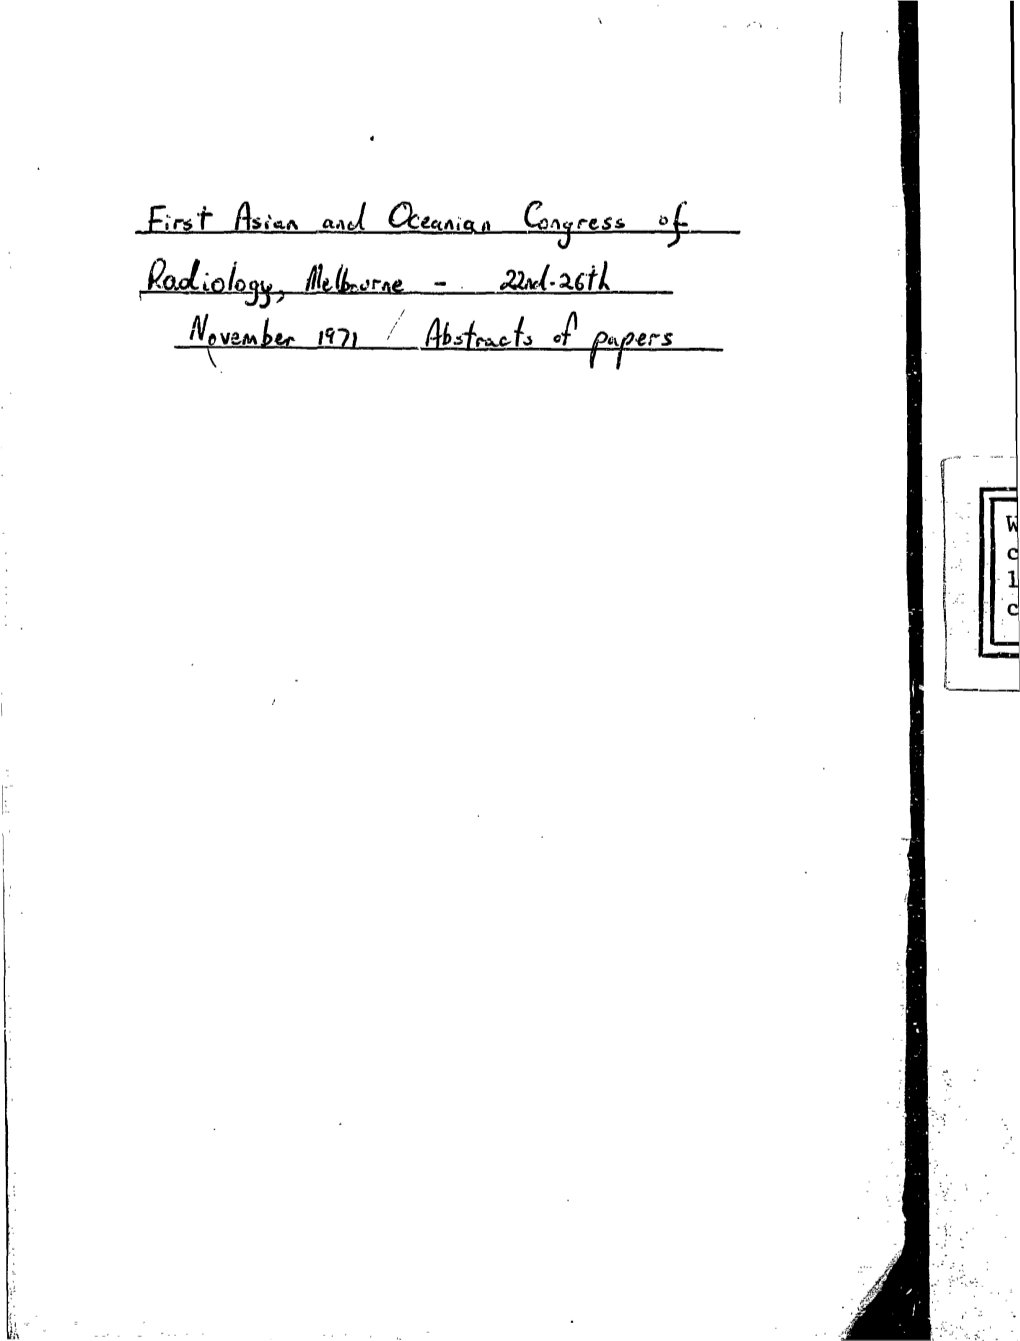 First Asian and Oceanian Congress of
Radiology, Melbourne - 22nd-26th
November 1971 / Abstracts of papers
W
c
l
c